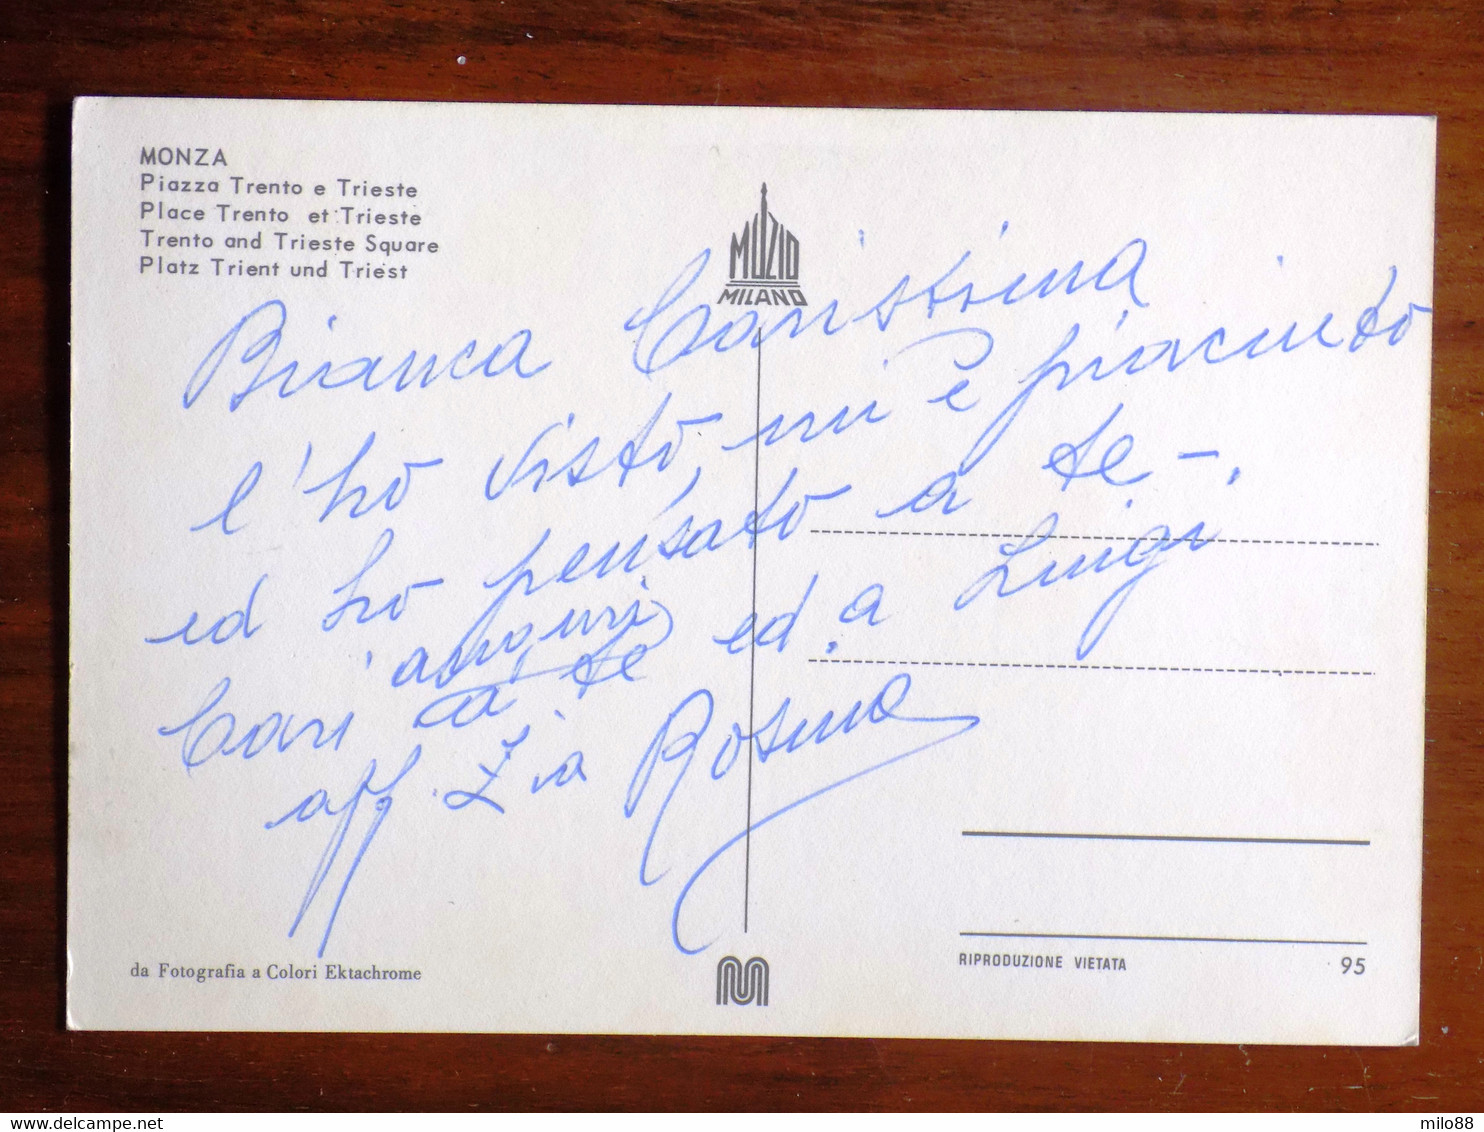 MONZA
Piazza Trento e Trieste
Place Trento et Trieste
Trento and Trieste Square
Platz Trient und Triest
MUZIO
MILANO
Bianca Carissima
l'ho visto, mi è piaciuto
ed ho pensato a te -.
Cari auguri a te ed a Luigi
aff. Zia Rosina
da Fotografia a Colori Ektachrome
RIPRODUZIONE VIETATA
95
milo88